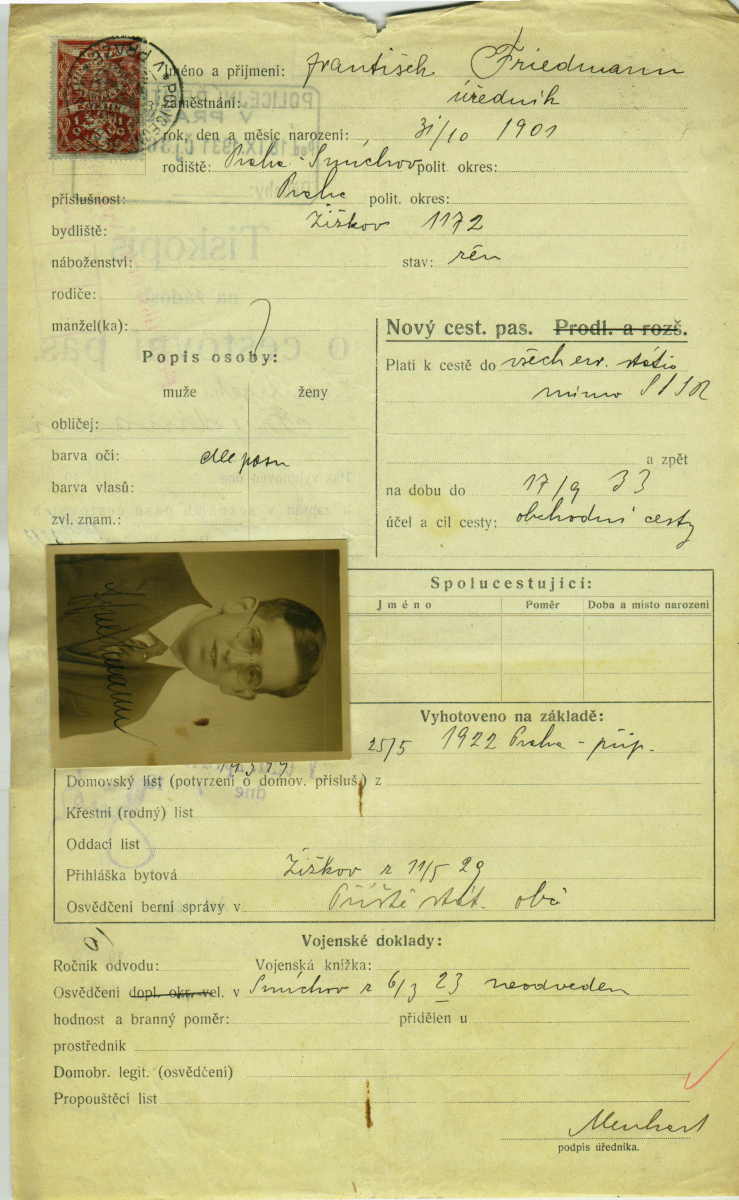 Jméno a příjmení: František Friedmann
zaměstnání: úředník
rok, den a měsíc narození: 31/10 1901
rodiště: Praha-Smíchov polit okres:
příslušnost: Praha polit. okres:
bydliště: Žižkov 1172
náboženství: stav: žen
rodiče:
manžel(ka):
Popis osoby:
muže ženy
obličej:
barva očí: dle pasu
barva vlasů:
zvl. znam.:
Nový cest. pas. Prodl. a rozš.
Platí k cestě do všech evr. států
mimo SSSR
a zpět
na dobu do 17/9 33
účel a cíl cesty: obchodní cesty
Spolucestující:
Jméno Poměr Doba a místo narození
Vyhotoveno na základě:
25/5 1922 Praha - přísp.
Domovský list (potvrzení o domov. přísluš.) z
Křestní (rodný) list
Oddací list
Přihláška bytová Žižkov z 11/5 29
Osvědčení berní správy v Příště stát. obč
Vojenské doklady:
Ročník odvodu: Vojenská knížka:
Osvědčení dopl. okr. vel. v Smíchov z 6/3 23 neodveden
hodnost a branný poměr: přidělen u
prostředník
Domobr. legit. (osvědčení)
Propouštěcí list
podpis úředníka.